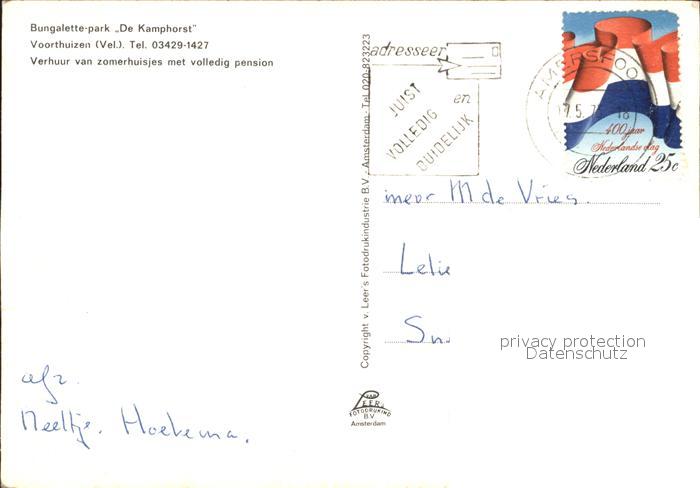 Bungalette-park „De Kamphorst"
Voorthuizen (Vel.) Tel. 03429-1427
Verhuur van zomerhuisjes met volledig pension
adresseer
JUIST
en
VOLLEDIG
DUIDELIJK
AMERSFOO
400 jaar
Nederlandse vlag
Nederland 25c
M de Vries.
Lelie
Sn.
privacy protection
Datenschutz
afz.
Neeltje. Hoekema.
Copyright v. Leer's Fotodrukindustrie B.V. - Amsterdam - Tel 020-823223
VAN
LEER'S
FOTODRUKIND
B.V.
Amsterdam